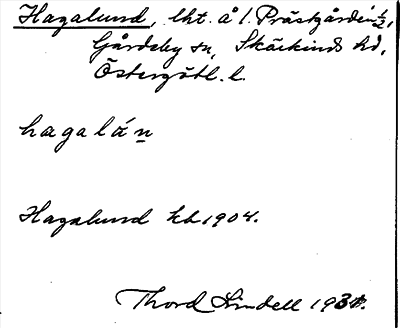 Hagalund, lht. å 1. Prästgården 1/2,
Gårdeby sn, Skärkinds hd,
Östergötl. l.
hagalán
Hagalund kb 1904.
Thord Lindell